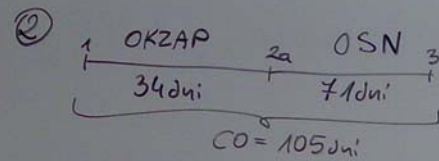 ②
OKZAP OSN
1 2a 3
34 dni 71 dni
CO = 105 dni